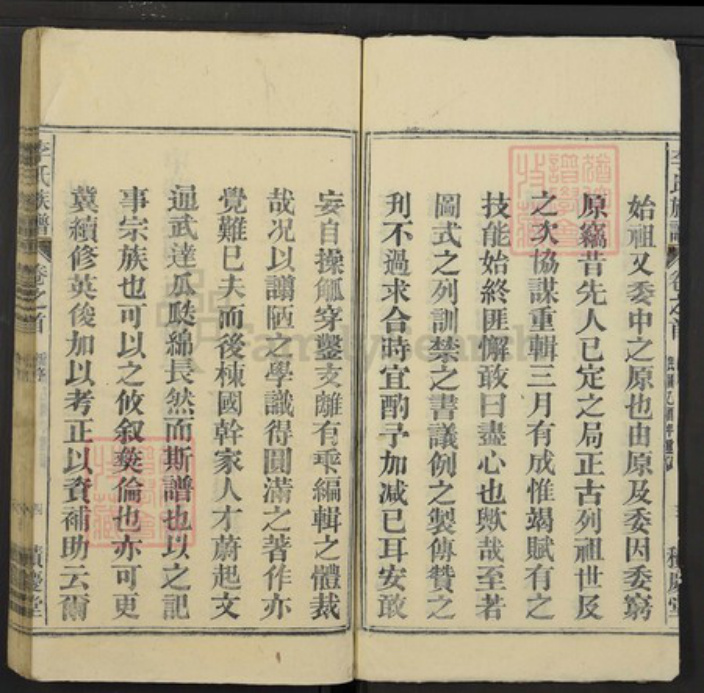 始祖又委中之原也由原及委因委窮
原竊昔先人已定之局正古列祖世及
之次協謀重輯三月有成惟竭賦有之
技能始終匪懈敢曰盡心也歟哉至若
圖式之列訓禁之書議例之製傳贊之
刋不過求合時宜酌予加減已耳安敢
妄自操觚穿鑿支離有乖編輯之體裁
哉况以謭陋之學識得圓滿之著作亦
覺難已夫而後棟國幹家人才蔚起文
逓武達瓜瓞綿長然而斯譜也以之記
事宗族也可以之攸叙彝倫也亦可更
冀續修英俊加以考正以資補助云爾
李氏族譜
卷之首
四
積慶堂
FamilySearch